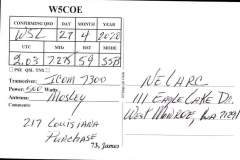 W5COE
CONFIRMING QSO DAY MONTH YEAR
W5L 27 4 2020
UTC MHz RST MODE
203 7.275 59 SSB
PSE QSL TNX
Transceiver: ICOM 7300
Power: 500 Watts
Antenna: Mosley
217 Louisiana
Purchase
73, James
NELARC
111 EAGLE LAKE DR.
WEST MONROE, LA 71291